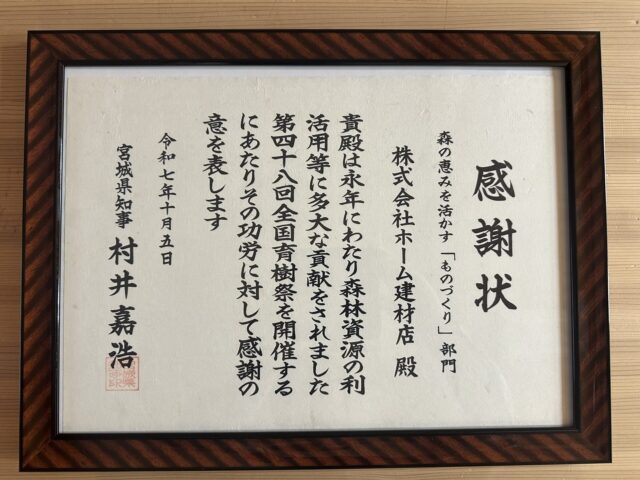 感謝状
森の恵みを活かす「ものづくり」部門
株式会社ホーム建材店 殿
貴殿は永年にわたり森林資源の利
活用等に多大な貢献をされました
第四十八回全国育樹祭を開催する
にあたりその功労に対して感謝の
意を表します
令和七年十月五日
宮城県知事 村井嘉浩